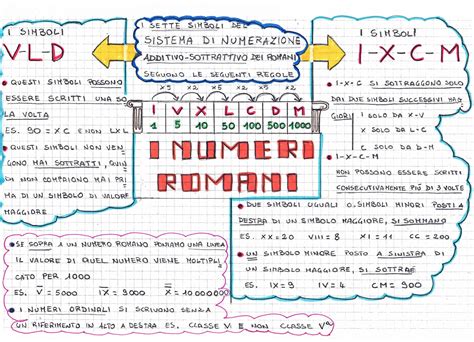 I SIMBOLI
V-L-D
• QUESTI SIMBOLI POSSONO
ESSERE SCRITTI UNA SO
LA VOLTA
ES. 90 = XC E NON LXL
• QUESTI SIMBOLI NON VEN
GONO MAI SOTTRATTI, QUIN
DI NON COMPAIONO MAI PRI
MA DI UN SIMBOLO DI VALORE
MAGGIORE
I SETTE SIMBOLI DEL
SISTEMA DI NUMERAZIONE
ADDITIVO-SOTTRATTIVO DEI ROMANI
SEGUONO LE SEGUENTI REGOLE
x5 x2 x5 x2 x5 x2
I V X L C D M
1 5 10 50 100 500 1000
I NUMERI
ROMANI
I SIMBOLI
I-X-C-M
• I-X-C SI SOTTRAGGONO SOLO
DAI DUE SIMBOLI SUCCESSIVI MAG
GIORI
I SOLO DA X-V
X SOLO DA L-C
C SOLO DA D-M
• I-X-C-M
NON POSSONO ESSERE SCRITTI
CONSECUTIVAMENTE PIÙ DI 3 VOLTE
• DUE SIMBOLI UGUALI O SIMBOLI MINORI POSTI A
DESTRA DI UN SIMBOLO MAGGIORE, SI SOMMANO
ES. XX = 20 VIII = 8 XI = 11 CC = 200
• UN SIMBOLO MINORE POSTO A SINISTRA DI
UN SIMBOLO MAGGIORE, SI SOTTRAE
ES. IX = 9 IV = 4 CM = 900
• SE SOPRA 1 UN NUMERO ROMANO PONIAMO UNA LINEA
IL VALORE DI QUEL NUMERO VIENE MOLTIPLI
CATO PER 1000
ES. V̅ = 5000 I̅X̅ = 9000 X̅ = 10000
• I NUMERI ORDINALI SI SCRIVONO SENZA
UN RIFERIMENTO IN ALTO A DESTRA ES. CLASSE V E NON CLASSE Vª